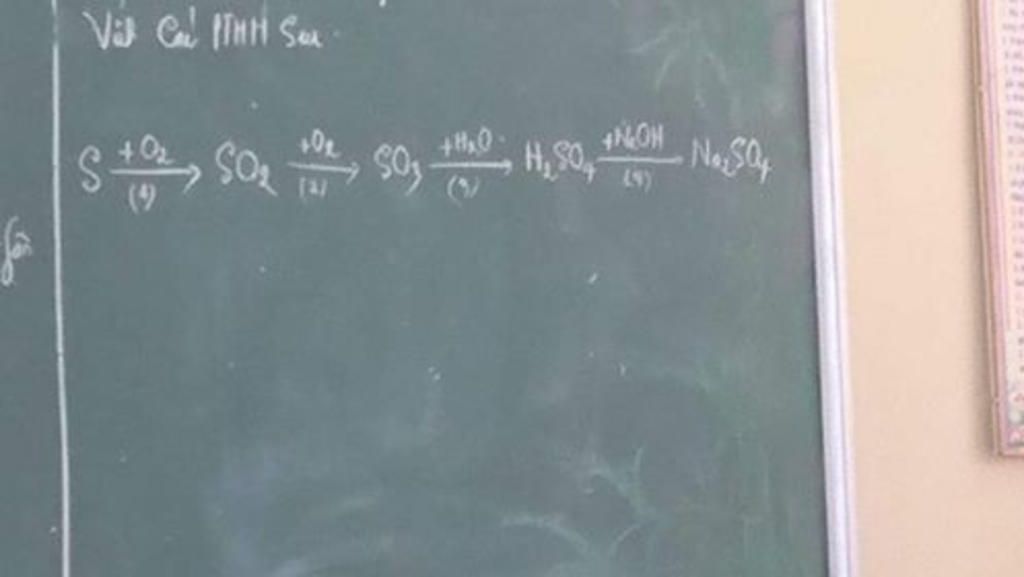 Viết Các PTHH Sau
S +O₂ (1) → SO₂ +O₂ (2) → SO₃ +H₂O (3) → H₂SO₄ +NaOH (4) → Na₂SO₄